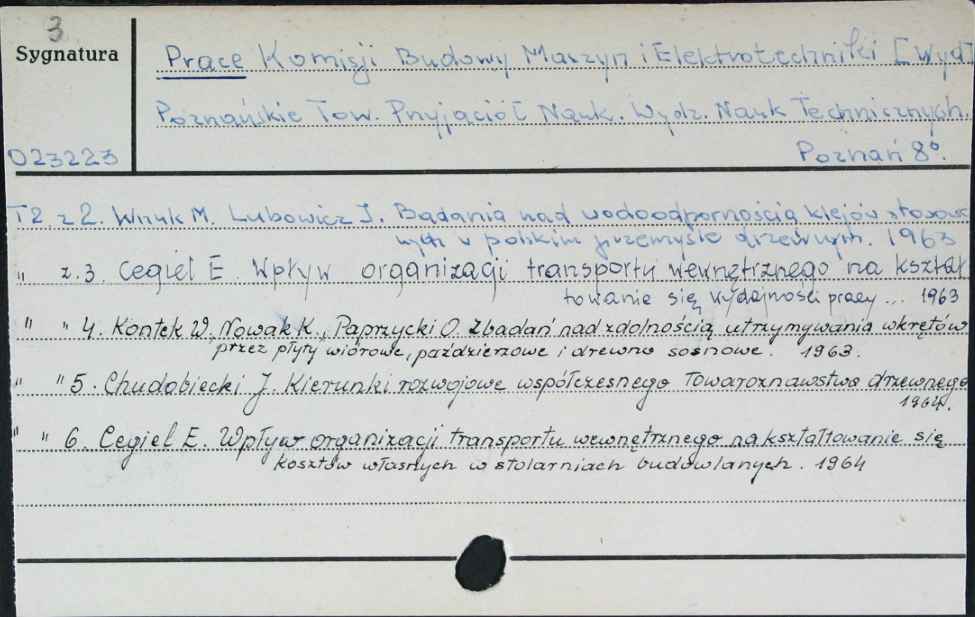 3
Sygnatura
Prace Komisji Budowy Maszyn i Elektrotechniki [Wyd]
Poznańskie Tow. Przyjaciół Nauk. Wydz. Nauk Technicznych.
023223
Poznań 8°.
T2 z 2. Wnuk M. Lubowicz J. Badania nad wodoodpornością klejów stosowa
nych w polskim przemyśle drzewnym. 1963
" z. 3. Cegieł E. Wpływ organizacji transportu wewnętrznego na kształ
towanie się wydajności pracy... 1963
" " 4. Kontek W., Nowak K., Paprzycki O. Z badań nad zdolnością utrzymywania wkrętów
przez płyty wiórowe, paździerzowe i drewno sosnowe. 1963.
" " 5. Chudobiecki J. Kierunki rozwojowe współczesnego Towaroznawstwa drzewnego
1964.
" " 6. Cegieł E. Wpływ organizacji transportu wewnętrznego na kształtowanie się
kosztów własnych w stolarniach budowlanych. 1964